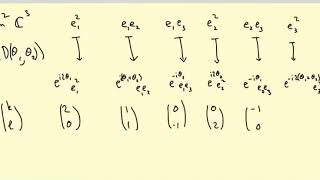 ² ℂ³ e₁² e₁e₂ e₁e₃ e₂² e₂e₃ e₃²
D(θ₁,θ₂) ↓ ↓ ↓ ↓ ↓ ↓
e^{i2θ₁} e₁² e^{i(θ₁+θ₂)} e₁e₂ e^{-iθ₂} e₁e₃ e^{i2θ₂} e₂² e^{-iθ₁} e₂e₃ e^{-i2(θ₁+θ₂)} e₃²
(k (2 (1 (0 (0 (-1
ℓ) 0) 1) -1) 2) 0)